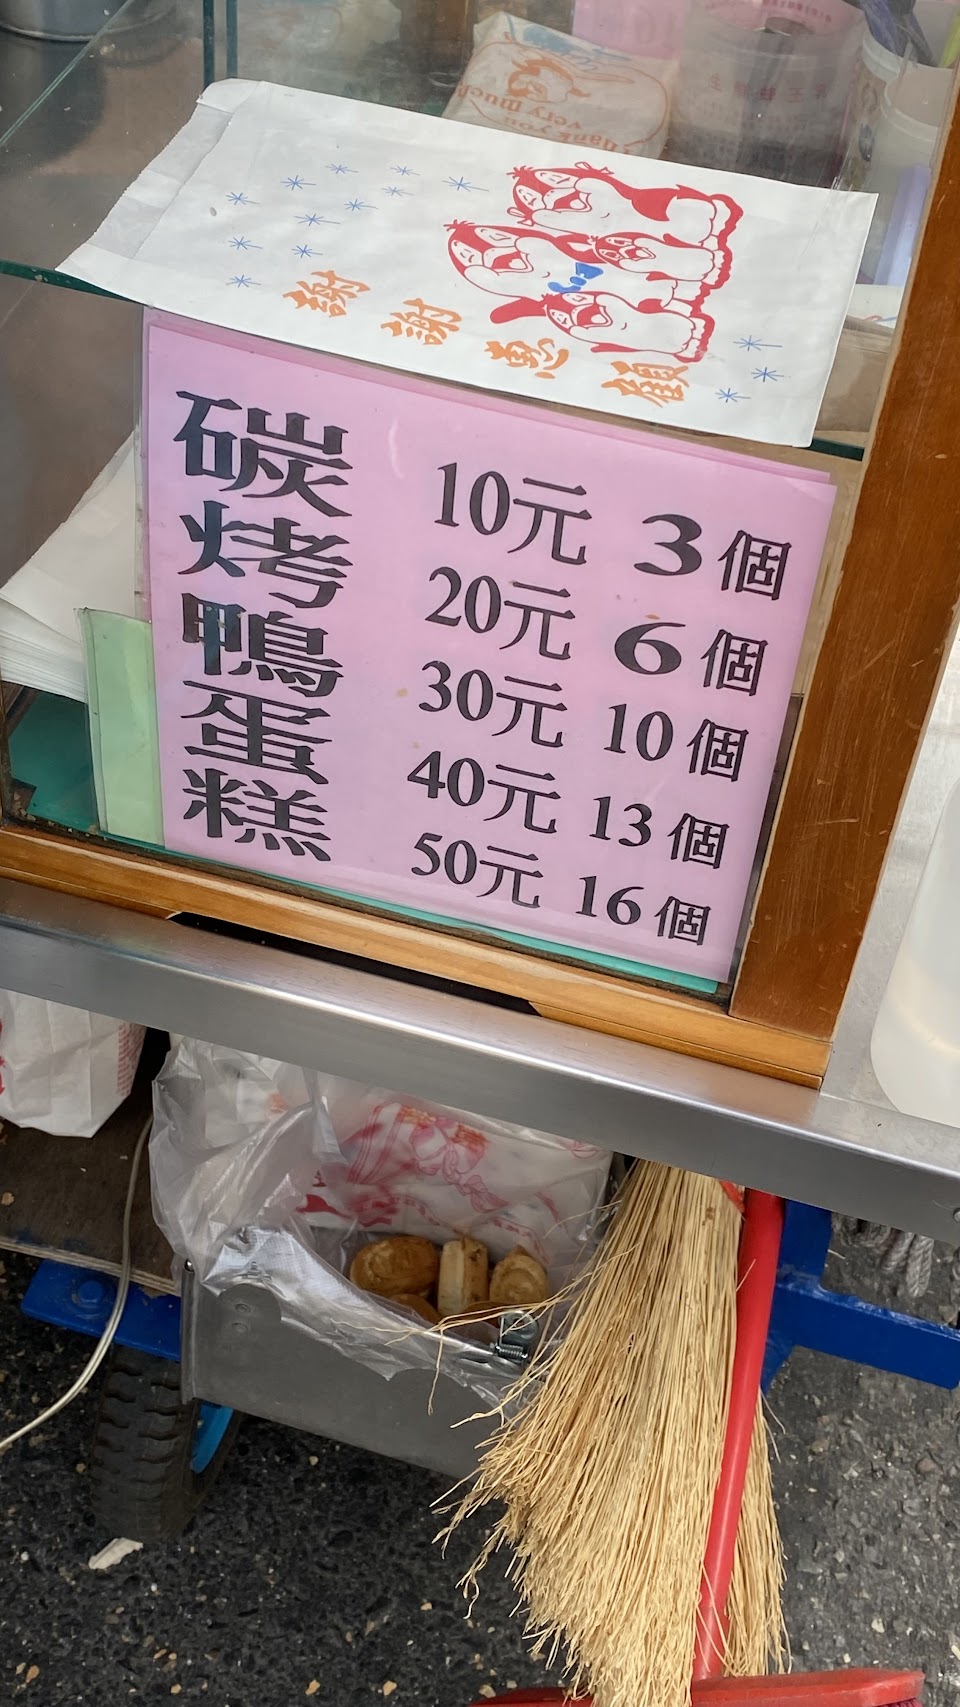 Thank you
very much
謝謝惠顧
碳烤鴨蛋糕
10元 3個
20元 6個
30元 10個
40元 13個
50元 16個